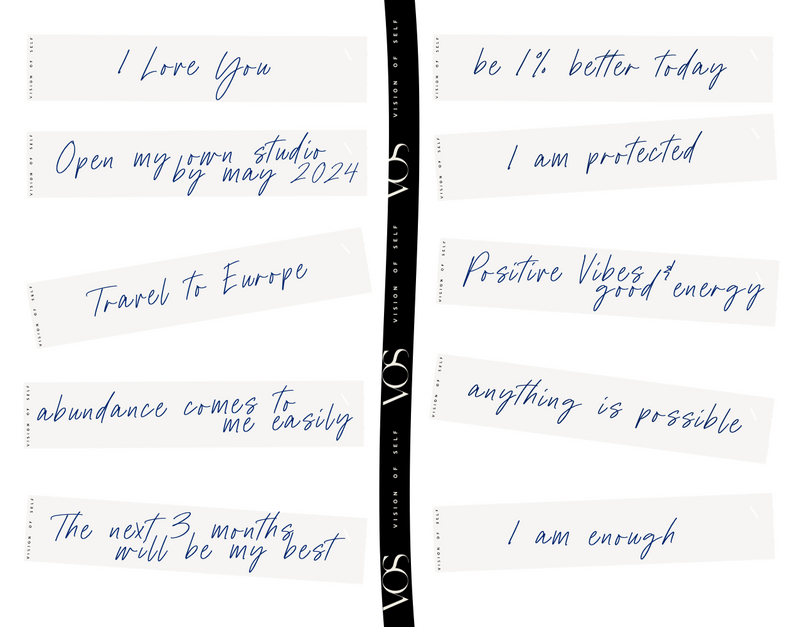 VISION OF SELF
I Love You
VISION OF SELF
Open my own studio
by may 2024
VISION OF SELF
Travel to Europe
VISION OF SELF
abundance comes to
me easily
VISION OF SELF
The next 3 months
will be my best
VISION OF SELF
VOS
VISION OF SELF
VOS
VISION OF SELF
VOS
VISION OF SELF
be 1% better today
VISION OF SELF
I am protected
VISION OF SELF
Positive Vibes &
good energy
VISION OF SELF
anything is possible
VISION OF SELF
I am enough